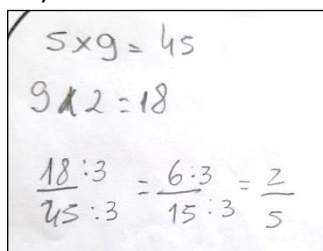 5x9=45
9x2=18
18:3/45:3 = 6:3/15:3 = 2/5